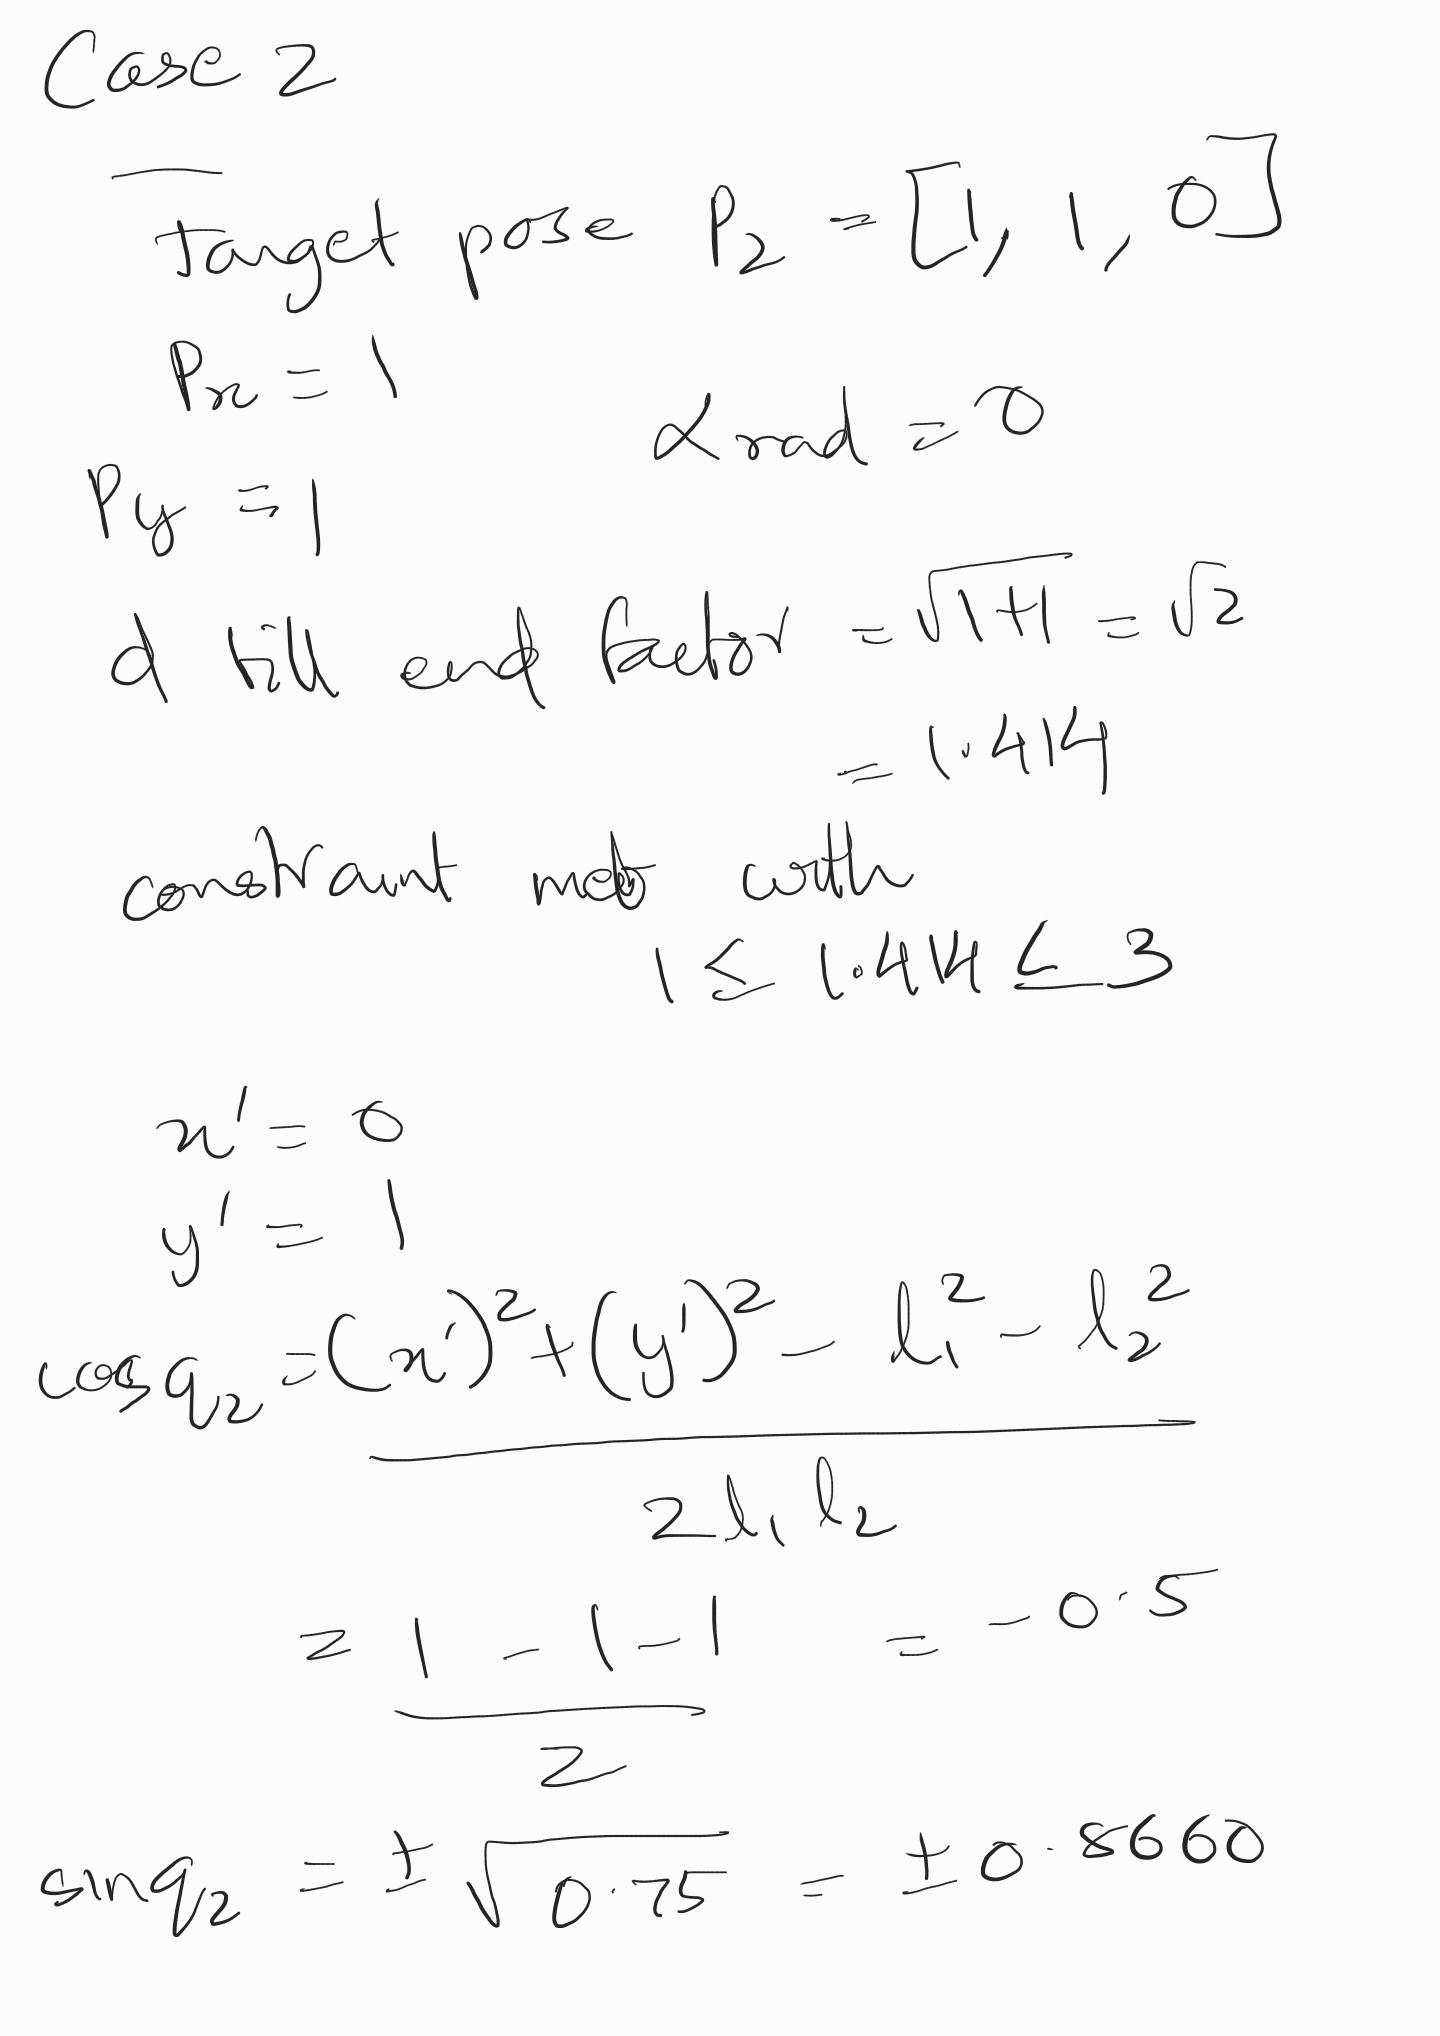 Case 2
Target pose P₂ = [1, 1, 0]
Px = 1
α rad = 0
Py = 1
d till end factor = √1+1 = √2
= 1.414
constraint met with
1 ≤ 1.414 ≤ 3
x' = 0
y' = 1
cos q₂ = (x')² + (y')² - l₁² - l₂²
2 l₁ l₂
= 1 - 1 - 1 = - 0.5
2
sin q₂ = ± √0.75 = ± 0.8660